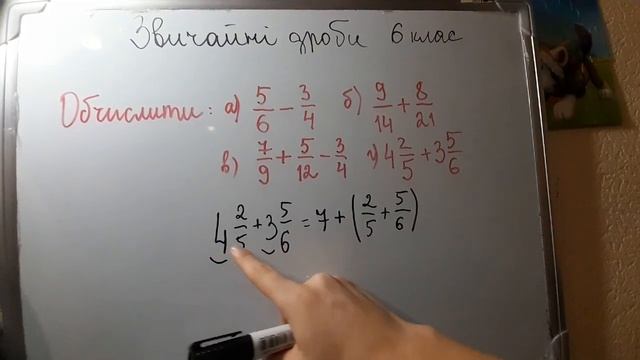 Звичайні дроби 6 клас
Обчислити: а) 5/6 - 3/4 б) 9/14 + 8/21
в) 7/9 + 5/12 - 3/4 г) 4 2/5 + 3 5/6
4 2/5 + 3 5/6 = 7 + (2/5 + 5/6)